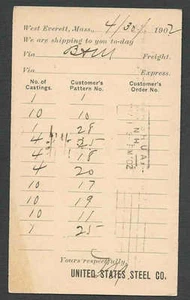 West Everett, Mass., 4/30/ 1902
We are shipping to you to-day
Via B&M Freight.
Via Express.
No. of Castings. Customer's Pattern No. Customer's Order No.
1 1
10 11
4 28
4 25
4 18
4 20
10 17
10 19
10 11
7 25
Yours respectfully,
UNITED STATES STEEL CO.